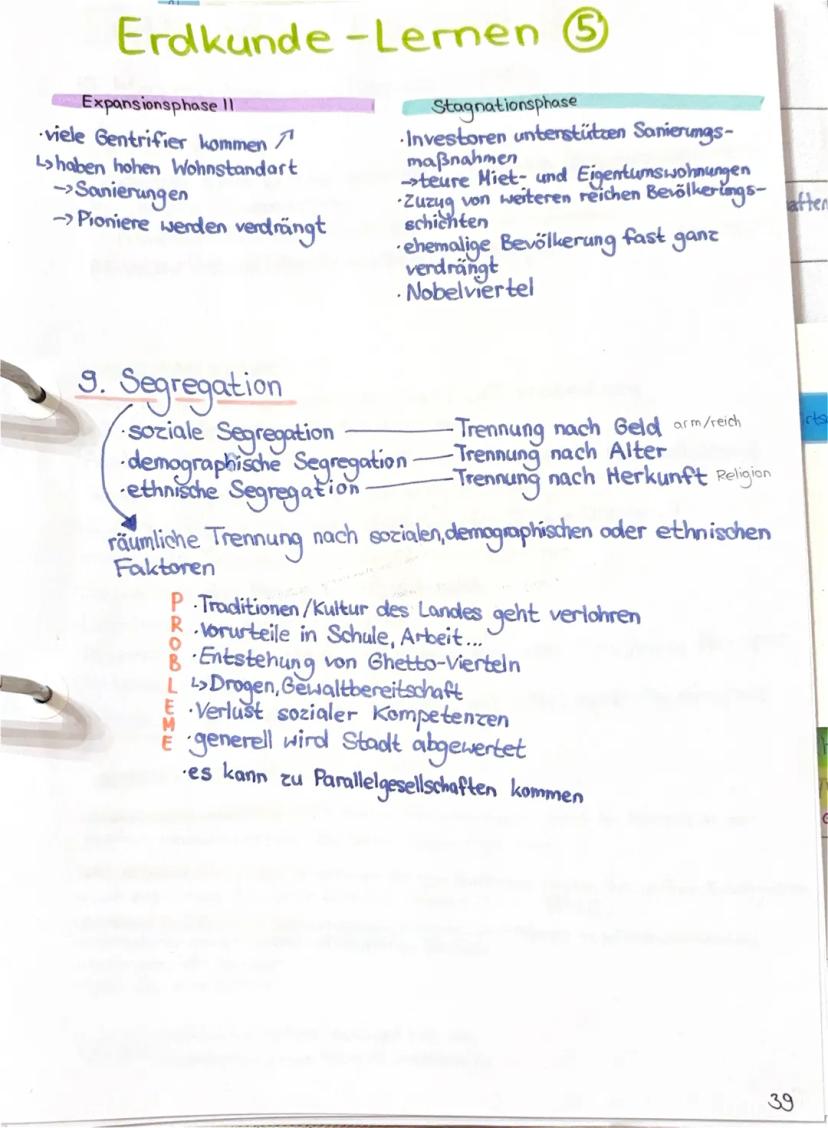 Erdkunde-Lernen ⑤
Expansionsphase II
·viele Gentrifier kommen ↗
↳haben hohen Wohnstandart
→Sanierungen
→Pioniere werden verdrängt
Stagnationsphase
·Investoren unterstützen Sanierungs-
maßnahmen
→teure Miet- und Eigentumswohnungen
·Zuzug von weiteren reichen Bevölkerungs-
schichten
·ehemalige Bevölkerung fast ganz
verdrängt
·Nobelviertel
9. Segregation
·soziale Segregation — Trennung nach Geld arm/reich
·demographische Segregation — Trennung nach Alter
·ethnische Segregation — Trennung nach Herkunft Religion
räumliche Trennung nach sozialen, demographischen oder ethnischen
Faktoren
PROBLEME
·Traditionen/Kultur des Landes geht verlohren
·Vorurteile in Schule, Arbeit...
·Entstehung von Ghetto-Vierteln
↳Drogen, Gewaltbereitschaft
·Verlust sozialer Kompetenzen
·generell wird Stadt abgewertet
·es kann zu Parallelgesellschaften kommen
39